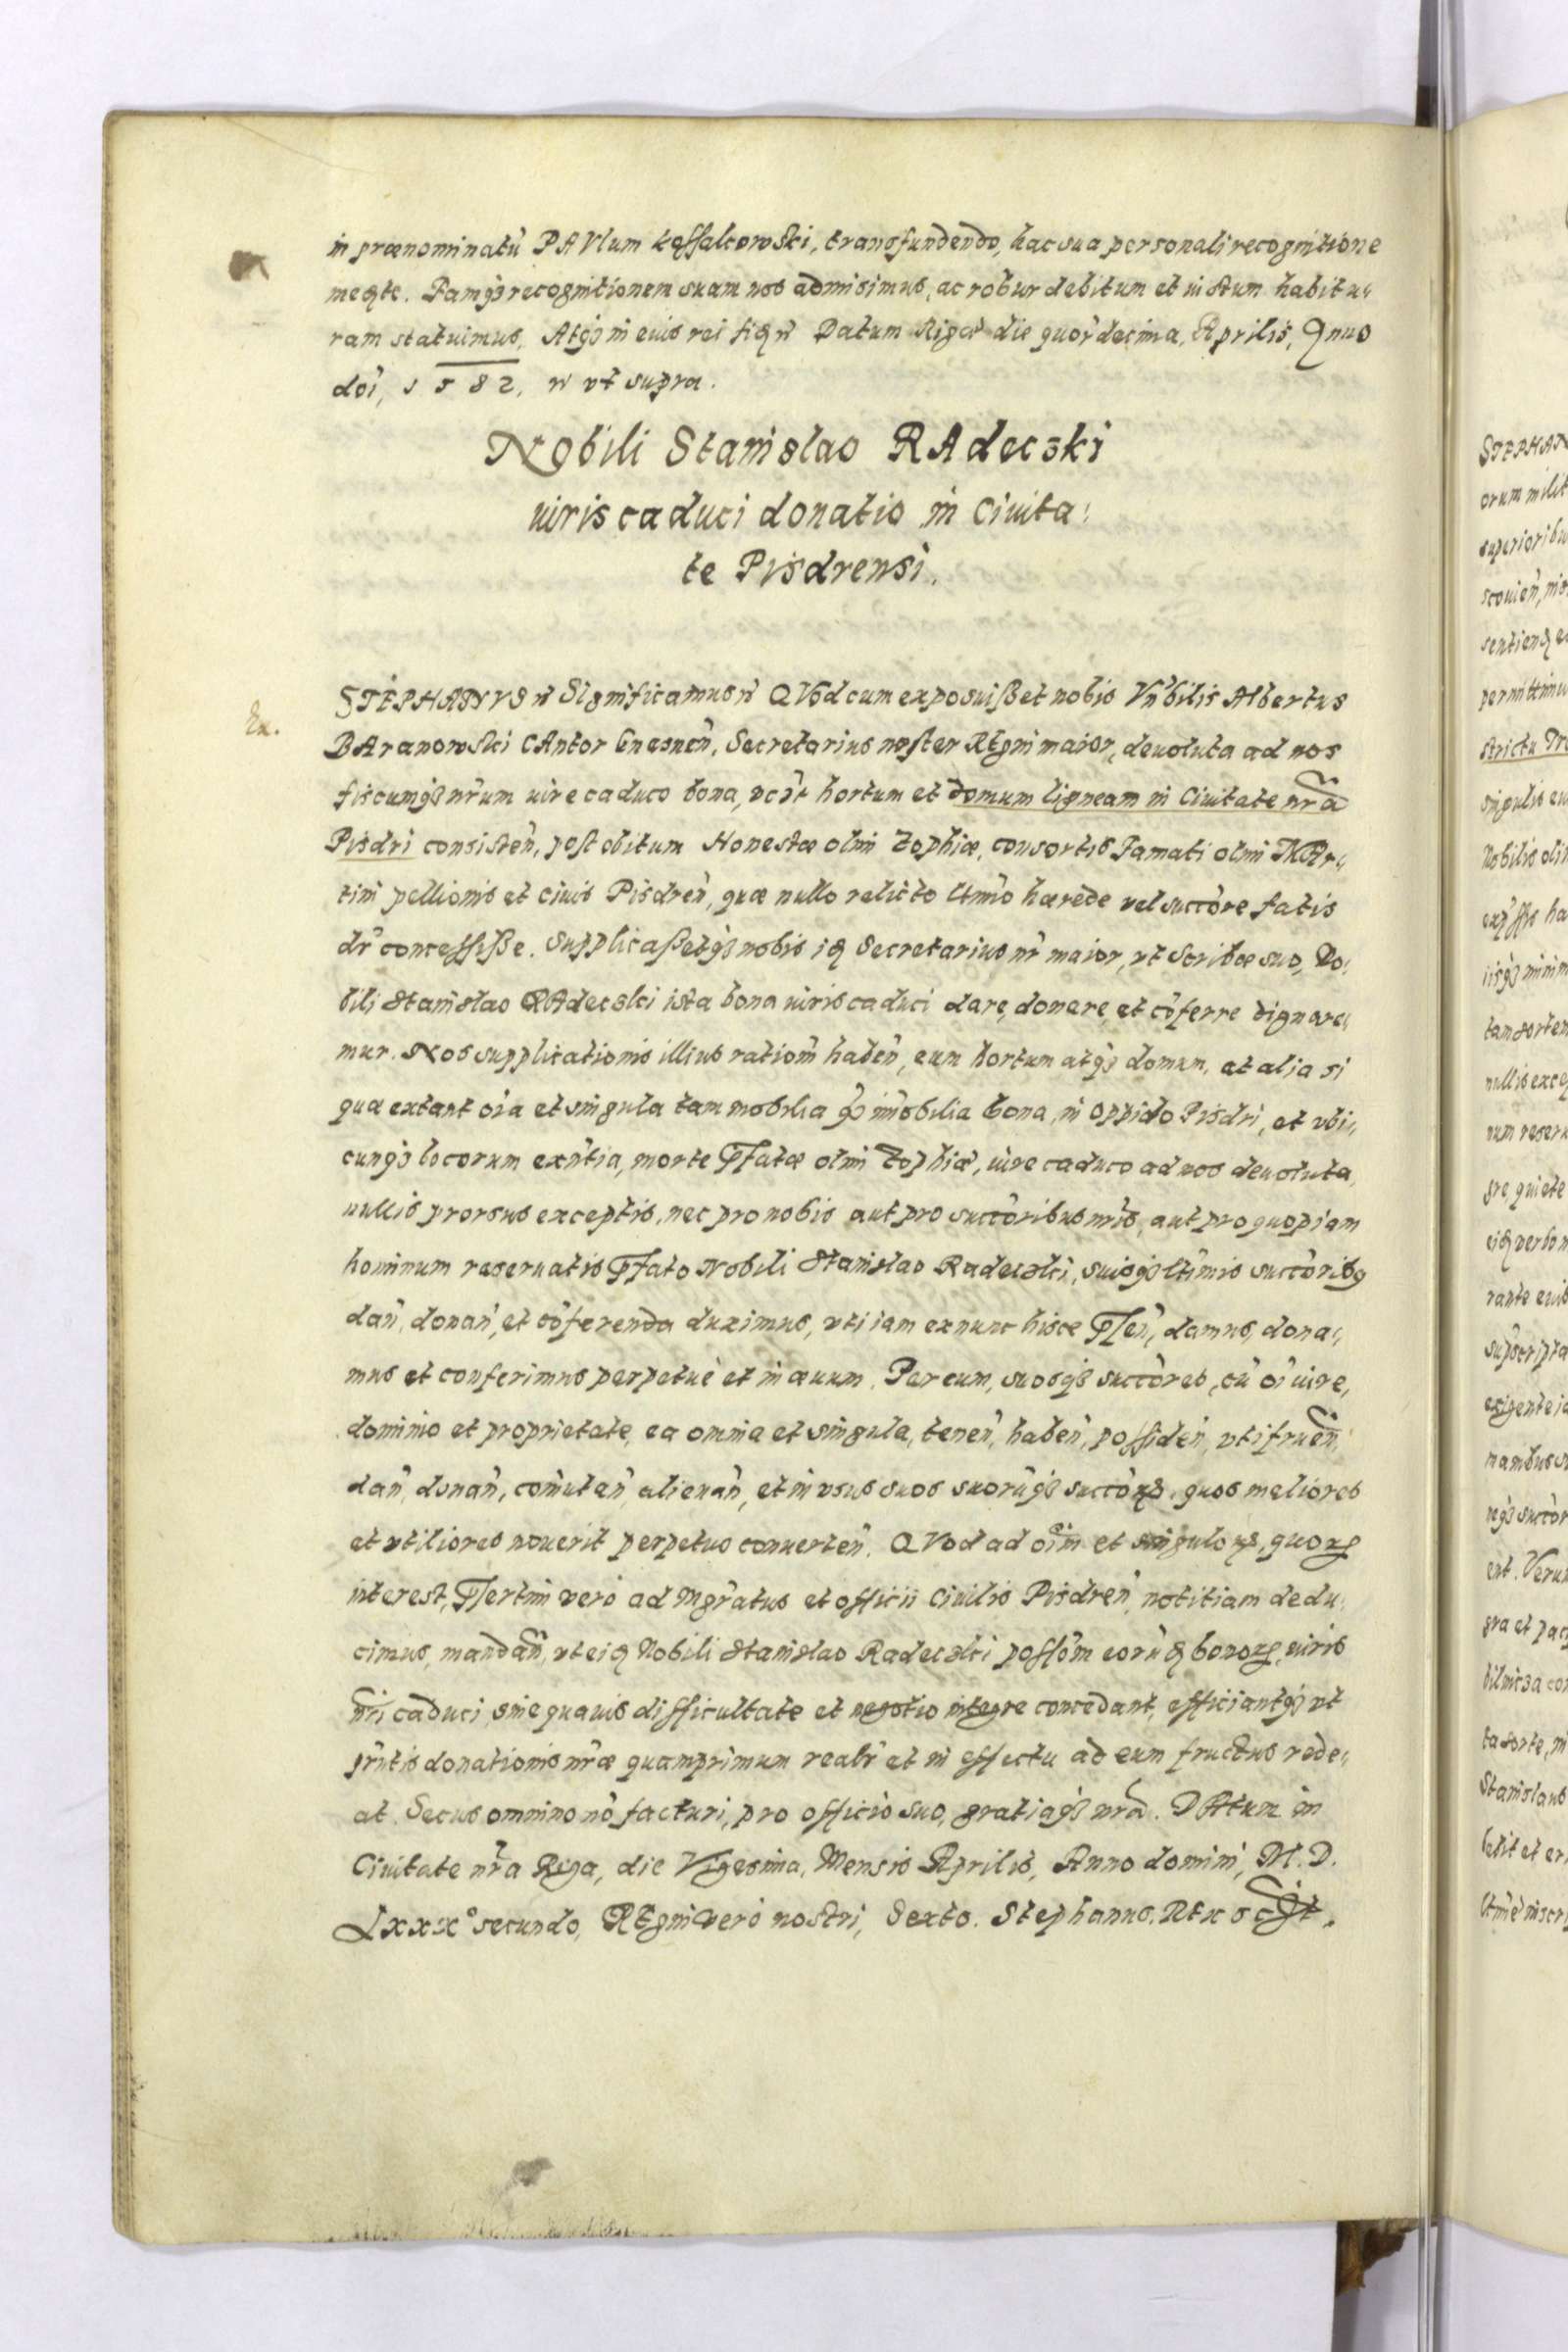 in prænominatū PAVlum transfundendo, hac sua personali recognitione
meqte. Famqȝ recognitionem suam nos admisimus, ac robur debitum et iustum habitu„
ram statuimus. Atqȝ in euis rei Datum Rigæ die quar̃decima, Aprilis, Anno
doi, 1582, ut supra.
Nobili Stanislao RAdeczki
iuris caduci donatio in Ciuita„
te Pisdrensi.
Ex.
STEPHANVS Significamus QVod cum exposuisset nobis Vn̄bilis Albertus
BAranowski CAntor Gnesnen̄, Secretarius noster REgni maior, deuoluta ad nos
fiscumqȝ nr̄um iure caduco bona, hortum et domum ligneam in Ciuitate nr̄a
Pisdri consisten̄, post obitum Honestæ olim Zophiæ, consortis Famati olim MAr„
tini pellionis et ciuis Pisdren̄, quæ nullo relicto ltm̄o hærede vel succōre fatis
dr̄ concessisse. Supplicassetqȝ nobis Secretarius nr̄ maior, vt Scribæ suo, No„
bili Stanislao RAdeczki ista bona iuris caduci dare, donare, et cōferre dignare„
mur. Nos supplicationis illius ratiom̄ haben̄, eum hortum atqȝ domum, et alia si
qua extant oīa et singula tam mobilia imōbilia bona, in oppido Pisdri, et vbi„
cunqȝ locorum exn̄tia, morte Pfatæ olim Zophiæ, iure caduco ad nos deuoluta,
nullis prorsus exceptis, nec pro nobis aut pro succōribus nr̄is, aut pro quopiam
hominum reseruatis Pfato Nobili Stanislao Radeczki, suisqȝ ltīmis succōribꝯ
dan̄, donan̄, et cōferenda duximus, vti iam exnunc hisce Psen̄, damus, dona„
mus et conferimus perpetuè et in æuum. Per eum, suosqȝ succōres, cū oī iure,
dominio et proprietate, ea omnia et singula, tenen̄, haben̄, possiden̄, vtifruen̄,
dan̄, donan̄, com̄utan̄, alienan̄, et in vsus suos suorūqȝ succōꝝ, quos meliores
et vtiliores nouerit perpetuo conuerten̄. QVod ad oīm et singuloꝝ, quoꝝ
interest, Psertim verò ad Mgr̄atus et officii Ciuilis Pisdren̄ notitiam dedu„
cimus, mandan̄, vt eiꝗ Nobili Stanislao Radeczki possōm eorūꝗ bonoꝝ, iuris
nr̄i caduci, sine quauis difficultate et negotio integre concedant, efficiantqȝ vt
pn̄tis donationis nr̄æ quamprimum realr̄ et in effectu ad eum fructus rede„
at. Secus omnino nō facturi, pro officio suo, gratiaqȝ nr̄a. DAtum in
Ciuitate nr̄a Riga, die Vigesima, Mensis Aprilis, Anno domini, M.D.
Lxxx° secundo, REgni verò nostri, Sexto. Stephanus, REx